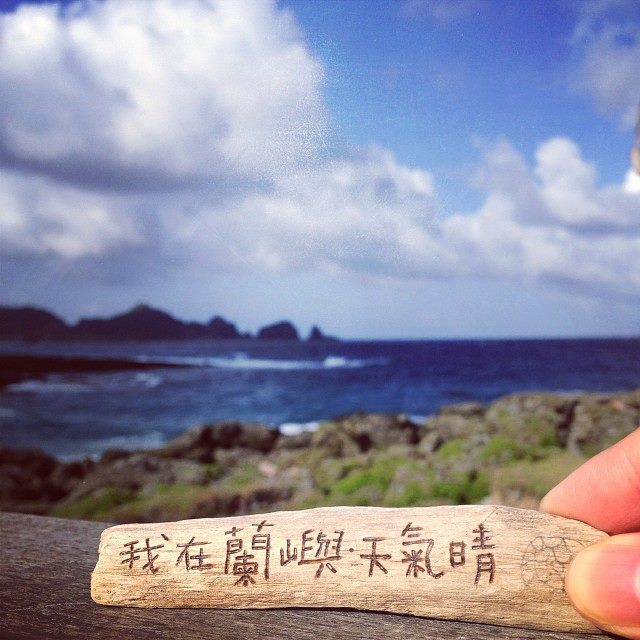 我在蘭嶼·天氣晴